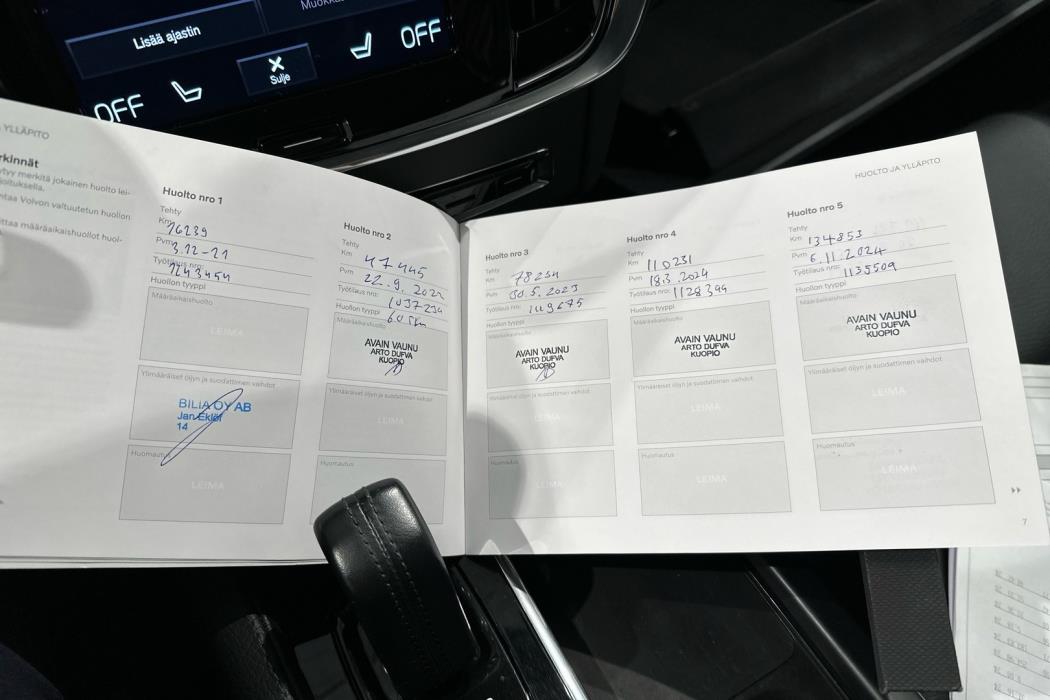 Muokka
Lisää ajastin
OFF
Sulje
OFF
YLLÄPITO
rkinnät
ytyy merkitä jokainen huolto lei-
joituksella.
ntaa Volvon valtuutetun huollon
ittaa määräaikaishuollot huol-
Huolto nro 1
Tehty
Km 16239
Pvm 3.12-21
Työtilaus nro: 1243454
Huollon tyyppi
Määräaikaishuolto
LEIMA
Ylimääräiset öljyn ja suodattimen vaihdot
BILIA OY AB
Jan Eklöf
14
Huomautus
LEIMA
Huolto nro 2
Tehty
Km 47445
Pvm 22.9.2022
Työtilaus nro: 1037234
Huollon tyyppi 60 tkm
Määräaikaishuolto
AVAIN VAUNU
ARTO DUFVA
KUOPIO
Ylimääräiset öljyn ja suodattimen vaihdot
LEIMA
Huomautus
Huolto nro 3
Tehty
Km 78234
Pvm 30.5.2023
Työtilaus nro:
Huollon tyyppi
Määräaikaishuolto
AVAIN VAUNU
ARTO DUFVA
KUOPIO
Ylimääräiset öljyn ja suodattimen vaihdot
LEIMA
Huomautus
LEIMA
HUOLTO JA YLLÄPITO
Huolto nro 4
Tehty
Km 110231
Pvm 18.3.2024
Työtilaus nro: 1128399
Huollon tyyppi
Määräaikaishuolto
AVAIN VAUNU
ARTO DUFVA
KUOPIO
Ylimääräiset öljyn ja suodattimen vaihdot
LEIMA
Huomautus
LEIMA
Huolto nro 5
Tehty
Km 134853
Pvm 6.11.2024
Työtilaus nro: 1135509
Huollon tyyppi
Määräaikaishuolto
AVAIN VAUNU
ARTO DUFVA
KUOPIO
Ylimääräiset öljyn ja suodattimen vaihdot
LEIMA
Huomautus
LEIMA
7